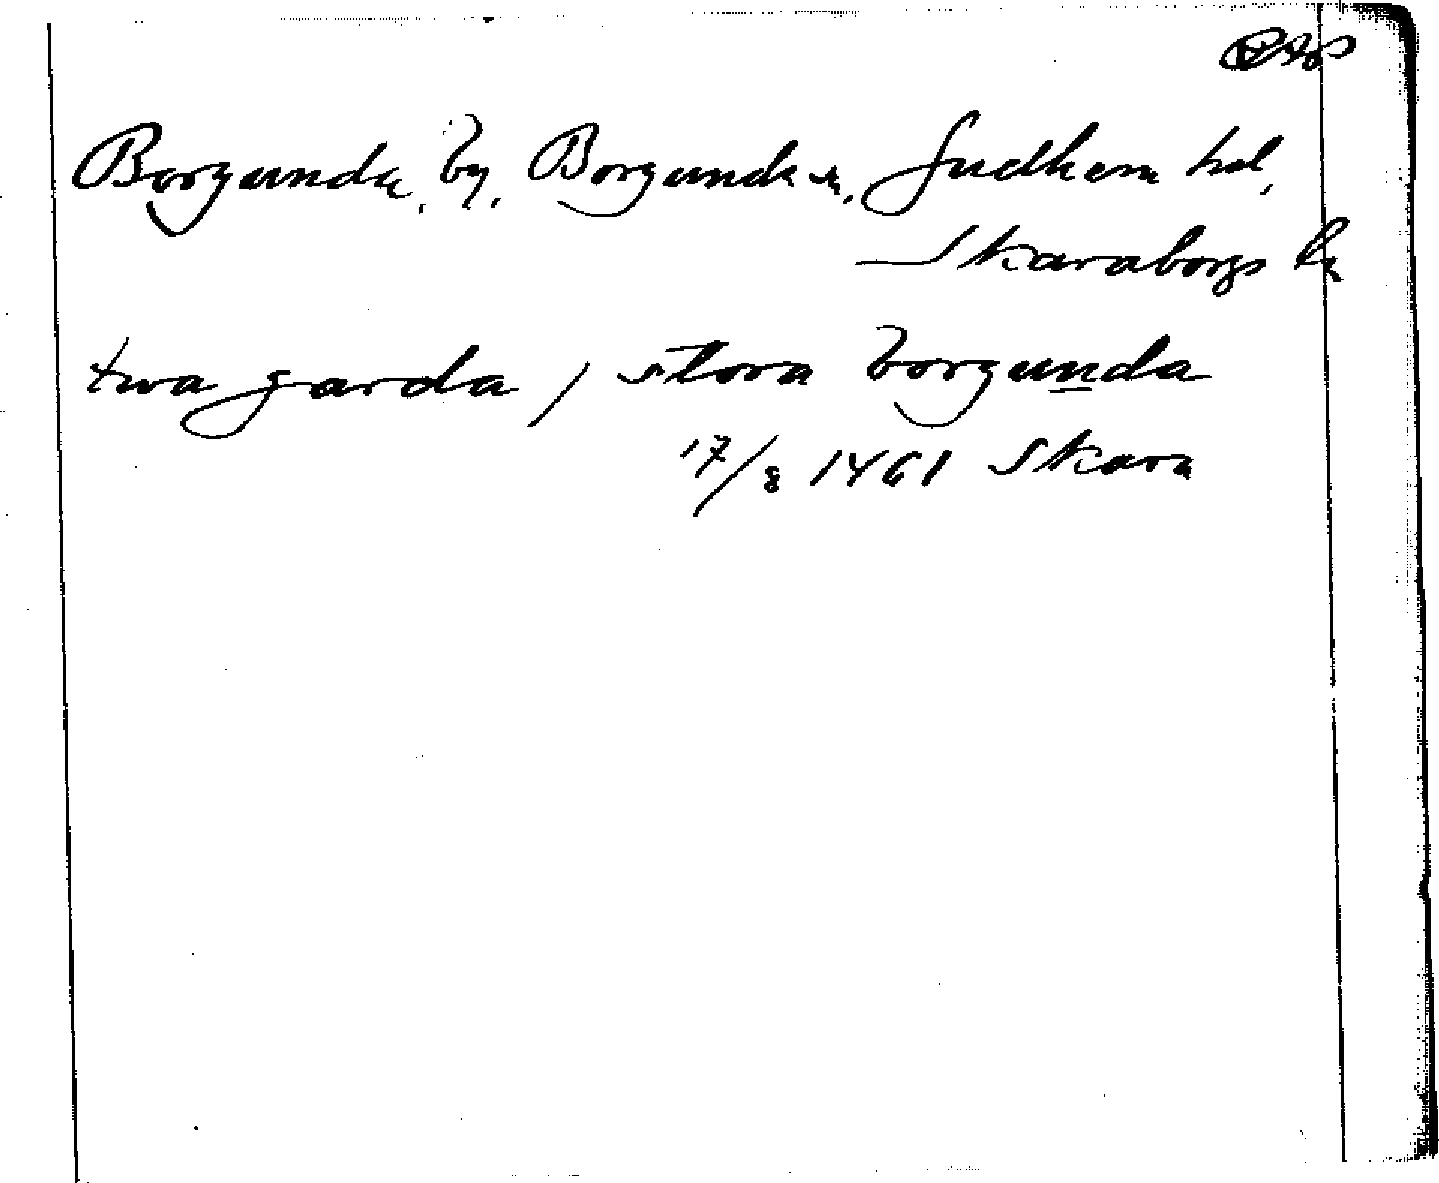 Borgunda, by, Borgunda sn, Gudhem hd,
Skaraborgs l.
twa garda / stora borgunda
17/8 1461 Skara